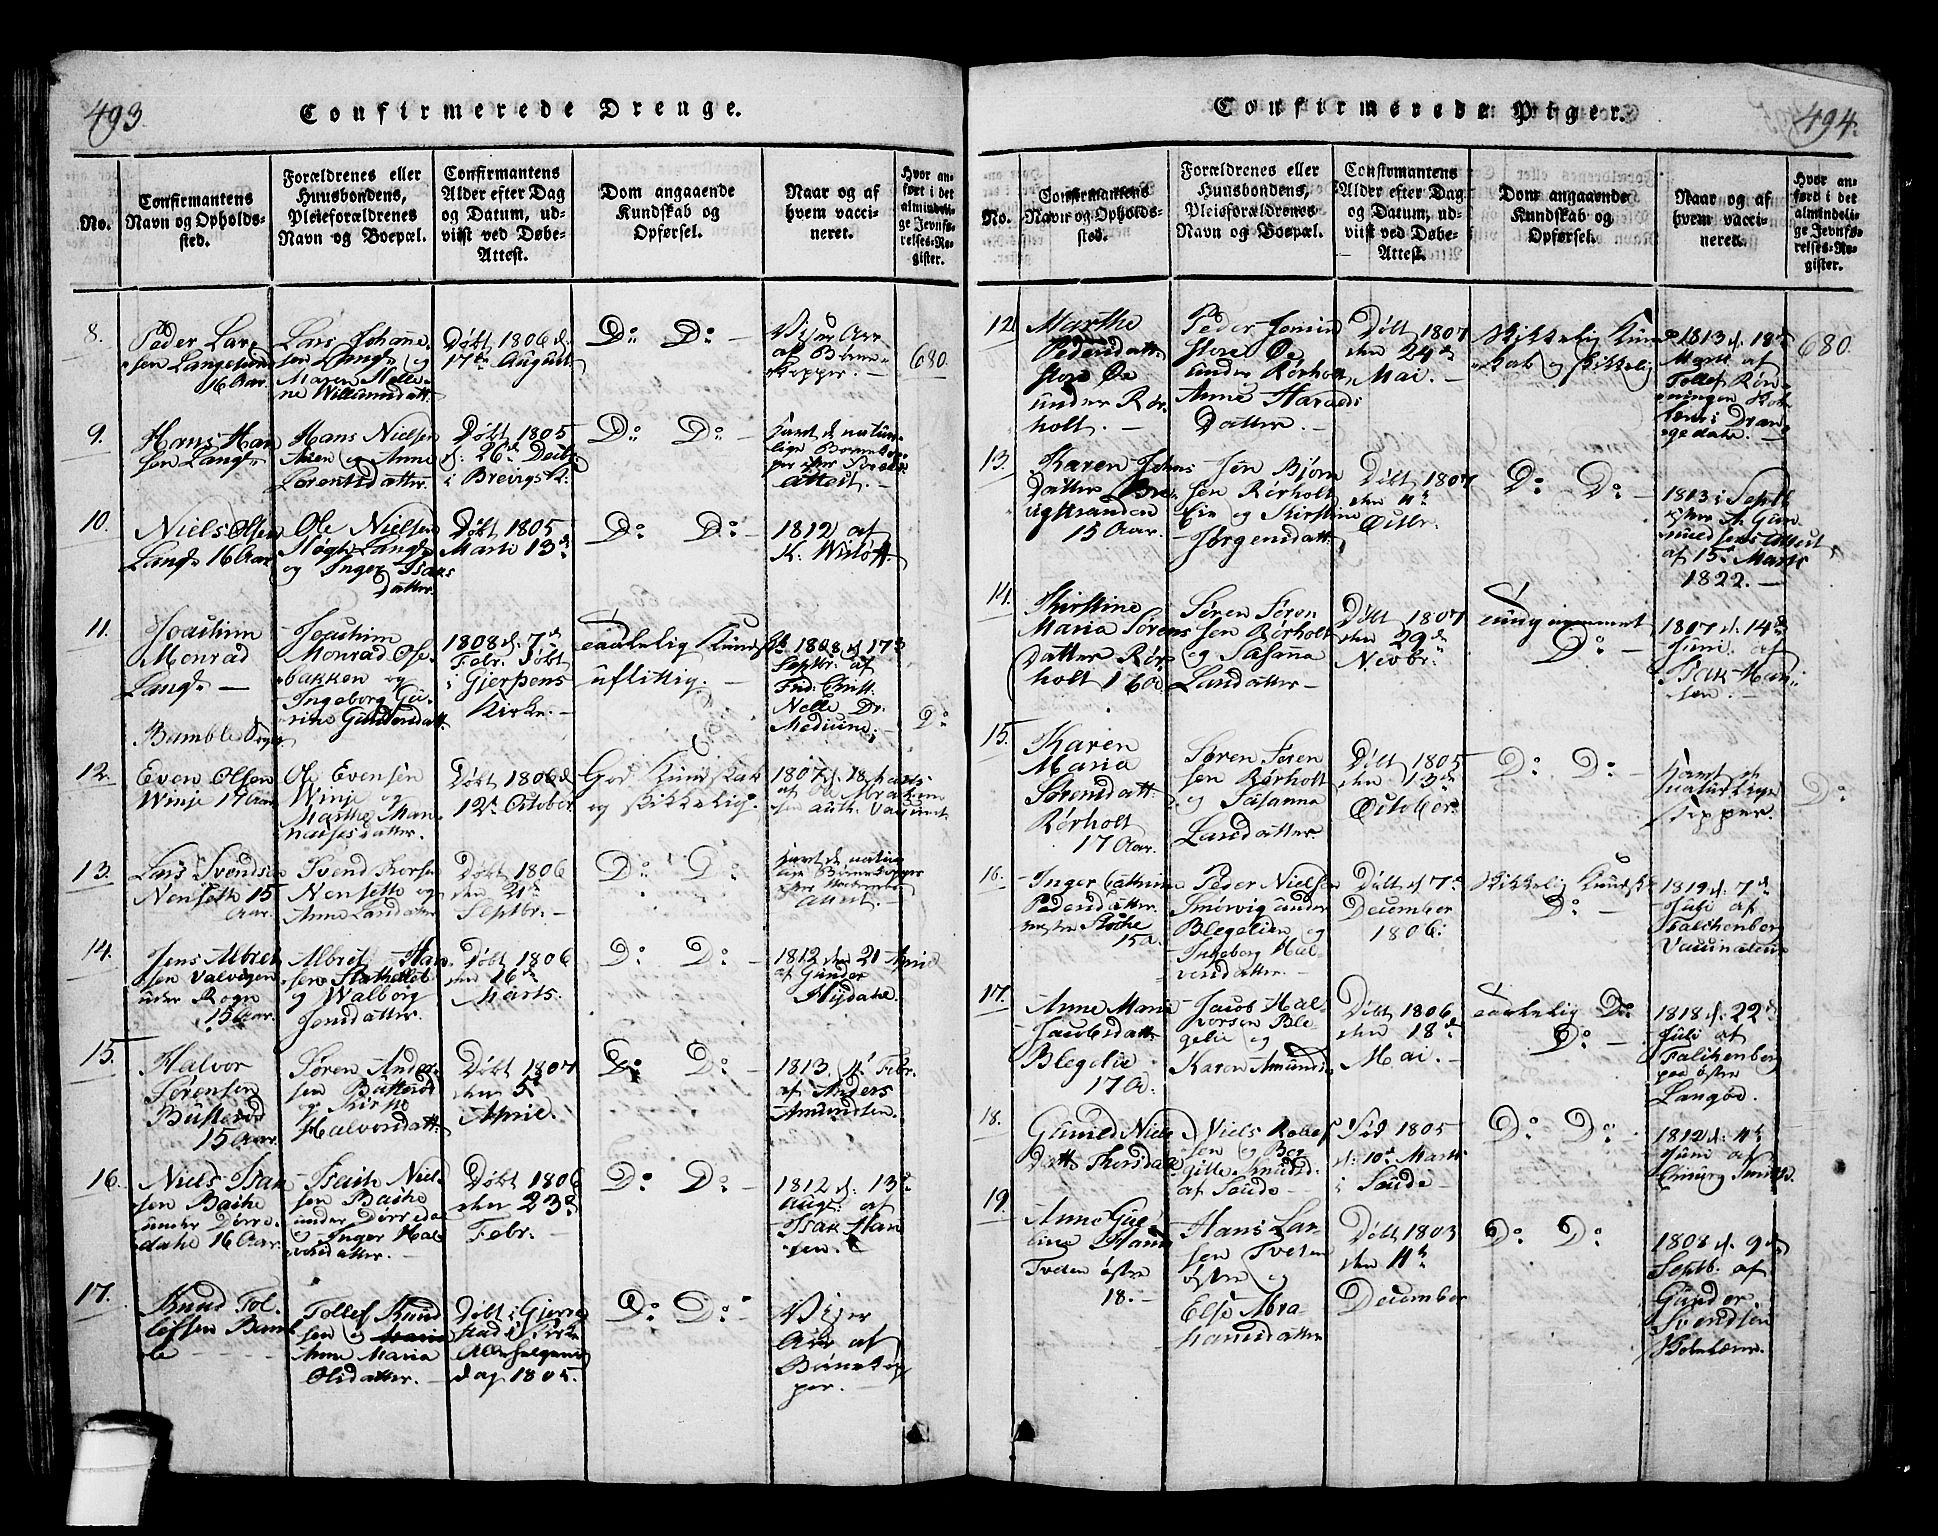 493.
Confirmerede Drenge.
No.
Confirmantens
Navn og Opholds-
sted.
Forældrenes eller
Huusbondens,
Pleieforældrenes
Navn og Boepæl.
Confirmantens
Alder efter Dag
og Datum, ud-
viist ved Døbe-
Attest.
Dom angaaende
Kundskab og
Opførsel.
Naar og af
hvem vacci-
neret.
Hvor an-
ført i det
almindeli-
ge Jevnfø-
relses-Re-
gister.
8.
Peder Lar-
sen Langesund
16 Aar.
Lars Johanne-
sen Langs. og
Maren Malle-
ne Willumsdatt.
Døbt 1806 d.
17de August
Do Do
Viser Arr
af Børne-
kopper. -
680.
9.
Hans Han
sen Langs
Hans Nielsen
Aasen og Anne
Lorentsdatter.
Døbt 1805
d: 26d Decbr.
i Brevigs K:
Do Do -
havt de natur-
lige Børnekop-
per efter
Attest. -
10.
Niels Olsen
Langs 16 Aar
Ole Nielsen
Høgh Langs
og Inger Isaks
datter.
Døbt 1805
Marts 13d
Do Do
1812 af
K: Wisløff.
11.
Joachim
Monrad
Langs -
Joachim
Monrad Ose-
bakken og
Ingeborg Ca-
rine Gundersdatt.
1808 d. 7d
Febr. Døbt
i Gjerpens
Kirke. -
taalelig Kundsk
uflittig. -
1808 d. 17d
Septbr. af
Frid. Christ.
Nelle Dr.
Medicine;
Do
Bamble Sogn
12.
Even Olsen
Winje 17 Aar
Ole Evensen
Winje og
Marthe Han
naisesdatter.
Døbt 1806 d
12te October
God Kundskab
og skikkelig.
1807 d. 18 Marts
af Ole Abraham
sen auth. Vaccinat.
13.
Lars Svendsen
Nensette 15
Aar.
Svend Torsen
Nensette og
Anne Larsdatter
Døbt 1806
den 21de
Septbr. -
Do Do -
havt de natur
lige Børnekopper
efter
Attest. -
14.
Jens Albret
sen Valvigen
under Rogn
15 Aar.
Albret Han
sen Stathelle
og Walborg
Jensdatter.
Døbt 1806
den 16de
Marts.
Do Do -
1812 den 21 April
af Gunder
Hydahl.
15.
Halvor
Sørensen
Butterød
15 Aar.
Søren Ander-
sen Butterød
og Kirstie
Halvorsdatt.
Døbt 1807
den 5te
April.
Do Do
1813. 4. Febr.
af Anders
Amundsen.
16.
Niels Isak
sen Bakke
under Dørre-
dahl 16 Aar.
Isach Niel-
sen Bakke
under Dørredal
og Inger Hal-
vorsdatter.
Døbt 1806
den 23d
Febr. -
Do Do -
1812 d. 13d
Augt. af
Isak Han
sen.
17.
Knud Tol-
lefsen Bamb-
le
Tollef Knud
sen og
Anne Maria
Olsdatter.
Døbt i Gjerre-
stad Kirke
Allehelgens
dag 1805.
Do Do
Viser
Arr af
Børnekop
per. -
494.
Confirmerede Piger.
No.
Confirmantens
Navn og Opholds-
sted.
Forældrenes eller
Huusbondens,
Pleieforældrenes
Navn og Boepæl.
Confirmantens
Alder efter Dag
og Datum, ud-
viist ved Døbe-
Attest.
Dom angaaende
Kundskab og
Opførsel.
Naar og af
hvem vacci-
neret.
Hvor an-
ført i det
almindeli-
ge Jevnfø-
relses-Re-
gister.
12
Marthe
Pedersdatt.
store Øe
under Rør-
holt. -
Peder
store Øe
under Rørholt
Anne Harvels
Datter. -
Døbt 1807
den 24de
Mai. -
Skikkelig Kund
skab og skikkelig
1813 d. 18de
Marts af
Tollef Røn-
ningen Kob
lens Dran-
gedahl. -
680.
13.
Karen Jens
Datter Bre-
vigstranden
15 Aar.
Jen Bjørn
sen Rørholt
Eie og Kirstine
Jørgensdatt.
Døbt 1807
den 4de
Octbr.
Do Do -
1813 i Septb
efter A Gun
nuldsens Attest
af 15de Marts
1822. -
14.
Kirstine
Maria Sørens
Datter Rør
holt 16 A
Søren Søren
sen Rørholt
og Susanna
Larsdatter -
Døbt 1807
den 29de
Novbr.
Do -
1807 d. 14de
Juni af
Isak Han-
sen. -
15.
Karen
Maria
Sørensdatt.
Rørholt
17 Aar.
Søren Søren
sen Rørholt
og Susanna
Larsdatter
Døbt 1805
den 13de
October.
Do Do -
havt de
naturlige
kopper.
Do
16.
Inger Cathrine
Pedersdatter
15 A.
Peder Nielsen
Smørvig under
Blegelien og
Ingeborg Hal-
vorsdatter.
Døbt d 7de
December
1806.
Skikkelig Kundsk
Do -
1819 d. 7de
Juli af
Falchenberg
Vaccinateur
17.
Anne Maria
Jacobsdatt.
Blegelie
17 A.
Jacob Hal-
vorsen Ble-
gelie og
Karen Amunds
Døbt 1806
den 18de
Mai. -
taalelig Do
Do -
1818 d. 22de
Juli af
Falchenberg
paa østre
Langøe.
18.
Gunild Niels
Datt.
Niels Rollef
sen og Beg
gitte Knudsd.
af Soude -
Fød 1805
d. 10de Marts
i Soude -
Do Do -
1812 d. 4de
Juni af
19.
Anne Gur-
line Hans
Tveten østre
18. -
Hans Lar-
sen Tveten
østre og
Else Abra
hamsdatter
Døbt 1803
den 11te
December
Do Do
1808 d. 9de
Septb. af
Gunder
Svendsen
Bolvlænr.